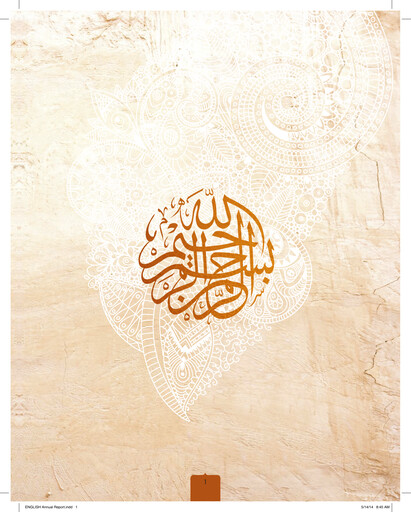 بسم الله الرحمن الرحيم
1
ENGLISH Annual Report.indd 1
5/14/14 9:40 AM